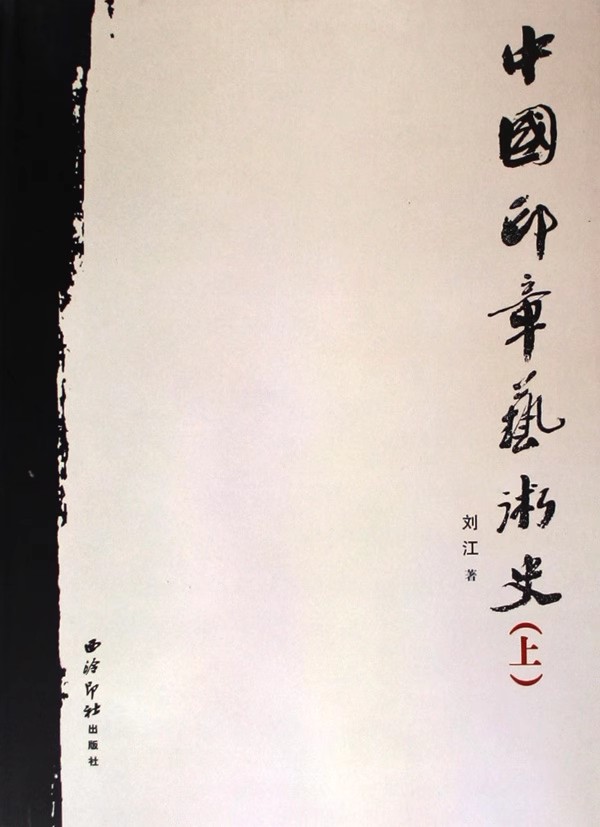 中國印章藝術史（上）
刘江 著
西泠印社出版社